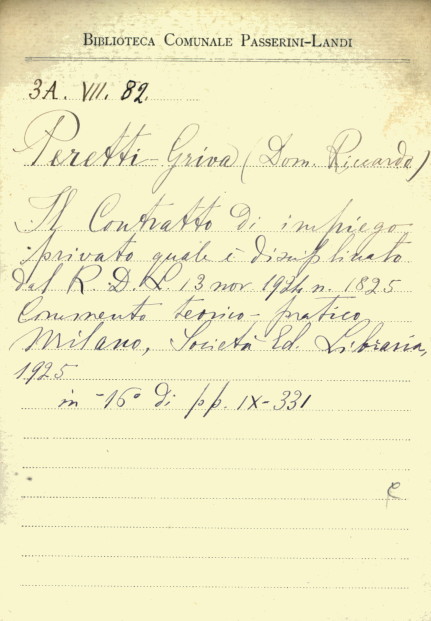 BIBLIOTECA COMUNALE PASSERINI-LANDI
3A. VII. 82.
Peretti-Griva (Dom. Riccardo)
Il Contratto di impiego
privato quale è disciplinato
dal R. D. L. 13 nov 1924 n. 1825
Commento teorico-pratico
Milano, Società Ed. Libraria,
1925
in -16° di pp. IX-331